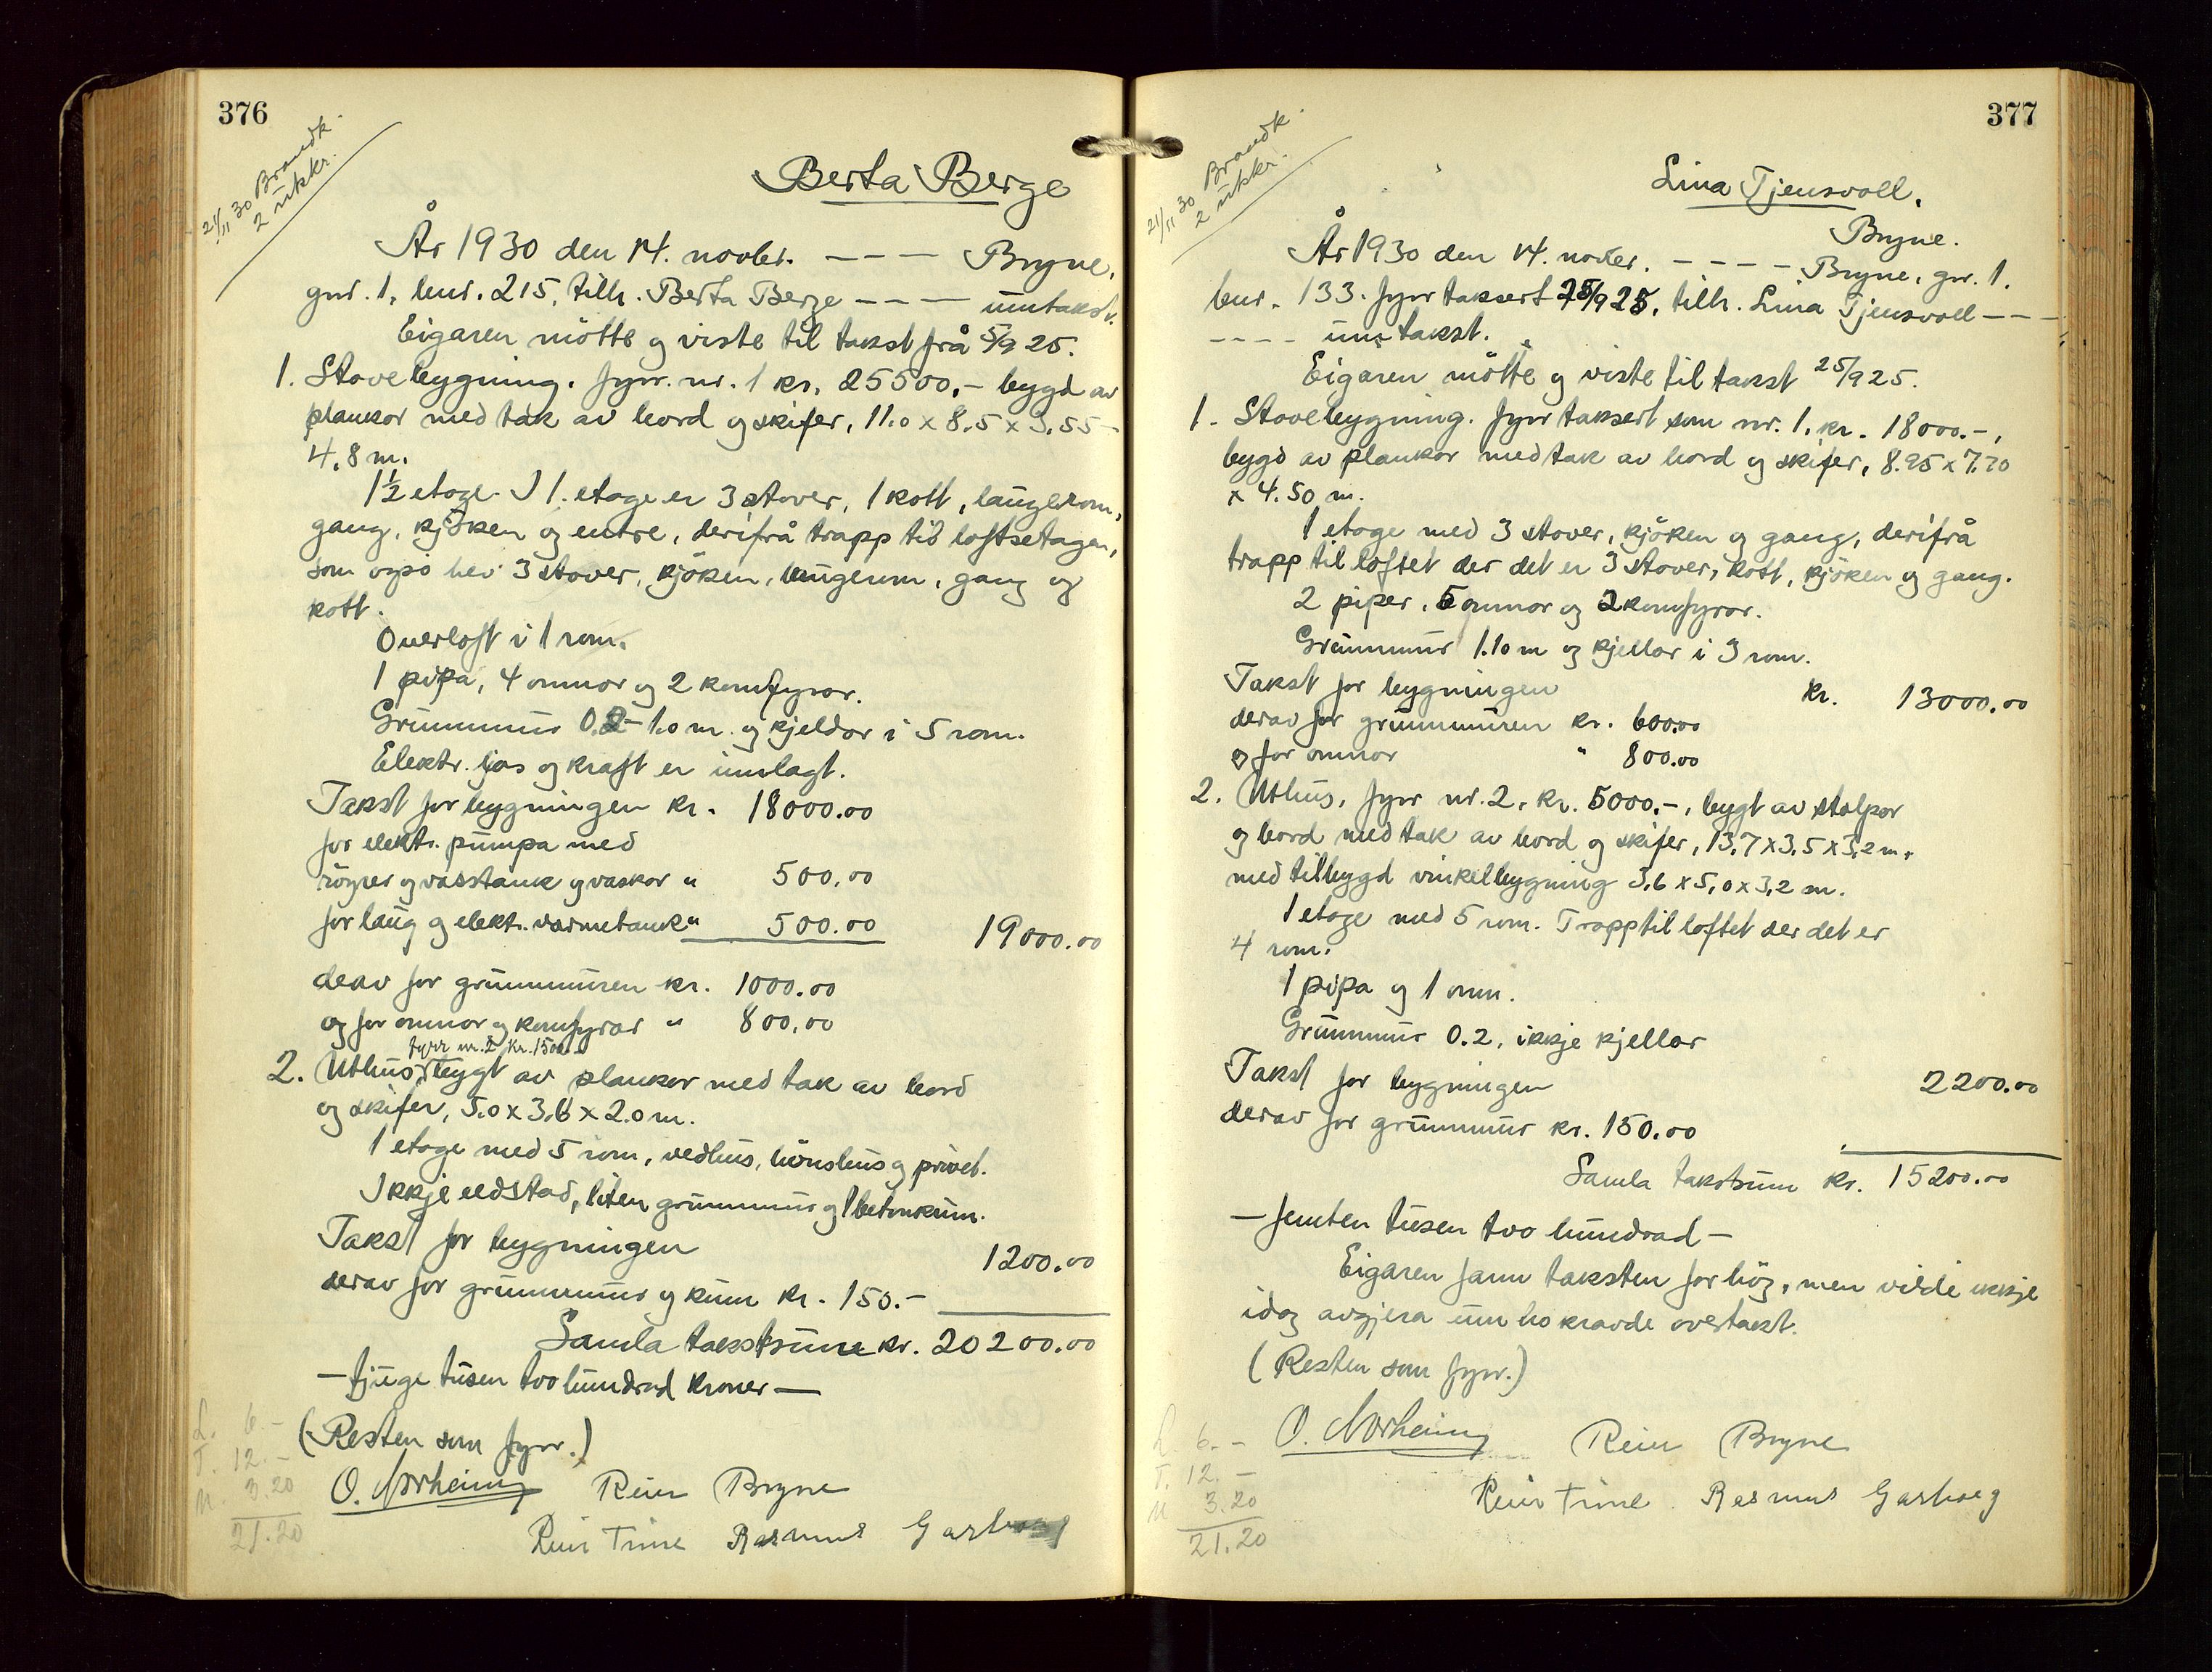 376
21/11 30 Brandk.
2 utskr.
Berta Berge
År 1930 den 14. novbr. - - - Bryne,
gnr. 1, bnr. 215, tilh. Berta Berge - - - umtakst.
Eigaren mötte og viste til takst frå 5/9 25.
1. Stovebygning. fyrr. nr. 1 kr. 25500,- bygd av
plankor med tak av bord og skifer, 11.0 x 8.5 x 3.55 -
4.8 m.
1 1/2 etage. I 1. etage er 3 stover, 1 kott, laugerom,
gang, kjöken og entre, derifrå trapp til loftsetagen,
som også hev 3 stover, kjöken, laugerom, gang og
kott.
Overloft i 1 rom.
1 pipa, 4 omnor og 2 komfyrar.
Grunnmur 0.2 - 1.0 m. og kjeldor i 5 rom.
Elektr. ljos og kraft er innlagt.
Takst for bygningen kr. 18000.00
for elektr. pumpa med
röyrer og vasstank og vaskor " 500.00
for laug og elektr. varmetank " 500.00 19000.00
derav for grunnmuren kr. 1000.00
og for omnor og komfyrar " 800.00
fyrr nr. 2 kr. 1500.-
2. Uthus, bygt av plankor med tak av bord
og skifer, 5.0 x 3.6 x 2.0 m.
1 etage med 5 rom, vedhus, hönshus og privet.
Ikkje eldstad, liten grunnmur og 1 betonkum.
Takst for bygningen 1200.00
derav for grunnmur og kum kr. 150.-
Samla takstsum kr. 20200.00
- tjuge tusen tvo hundrad kroner -
(Resten som fyrr.)
O. Norheim Reier Bryne
Reier Time Rasmus Garborg
L. 6.-
T. 12.-
M. 3.20
21.20
377
21/11 30 Brandk.
2 utskr.
Lina Tjensvoll,
Bryne.
År 1930 den 14. novbr. - - - - Bryne, gnr. 1.
bnr. 133. fyrr taksert 25/9 25, tilh. Lina Tjensvoll - - -
- - - - umtakst.
Eigaren mötte og viste til takst 25/9 25.
1. Stovebygning. fyrr taksert som nr. 1. kr. 18000.-,
bygd av plankor med tak av bord og skifer, 8.95 x 7.70
x 4.50 m.
1 etage med 3 stover, kjöken og gang, derifrå
trapp til loftet der det er 3 stover, kott, kjöken og gang.
2 piper, 5 omnor og 2 komfyrar.
Grunnmur 1.10 m og kjellar i 3 rom.
Takst for bygningen kr. 13000.00
derav for grunnmuren kr. 600.00
og for omnor " 800.00
2. Uthus, fyrr nr. 2, kr. 5000.-, bygt av stolpar
og bord med tak av bord og skifer, 13,7 x 3,5 x 3,2 m,
med tilbygd vinkelbygning 3,6 x 5,0 x 3,2 m.
1 etage med 5 rom. Trapp til loftet der det er
4 rom.
1 pipa og 1 omn.
Grunnmur 0.2, ikkje kjellar
Takst for bygningen 2200.00
derav for grunnmur kr. 150.00
Samla takstsum kr. 15200.00
- femten tusen tvo hundrad -
Eigaren fann taksten for hög, men vilde ikkje
idag avgjera um ho kravde overtakst.
(Resten som fyrr.)
O. Norheim Reier Bryne
Reier Time Rasmus Garborg
L. 6.-
T. 12.-
M 3.20
21.20